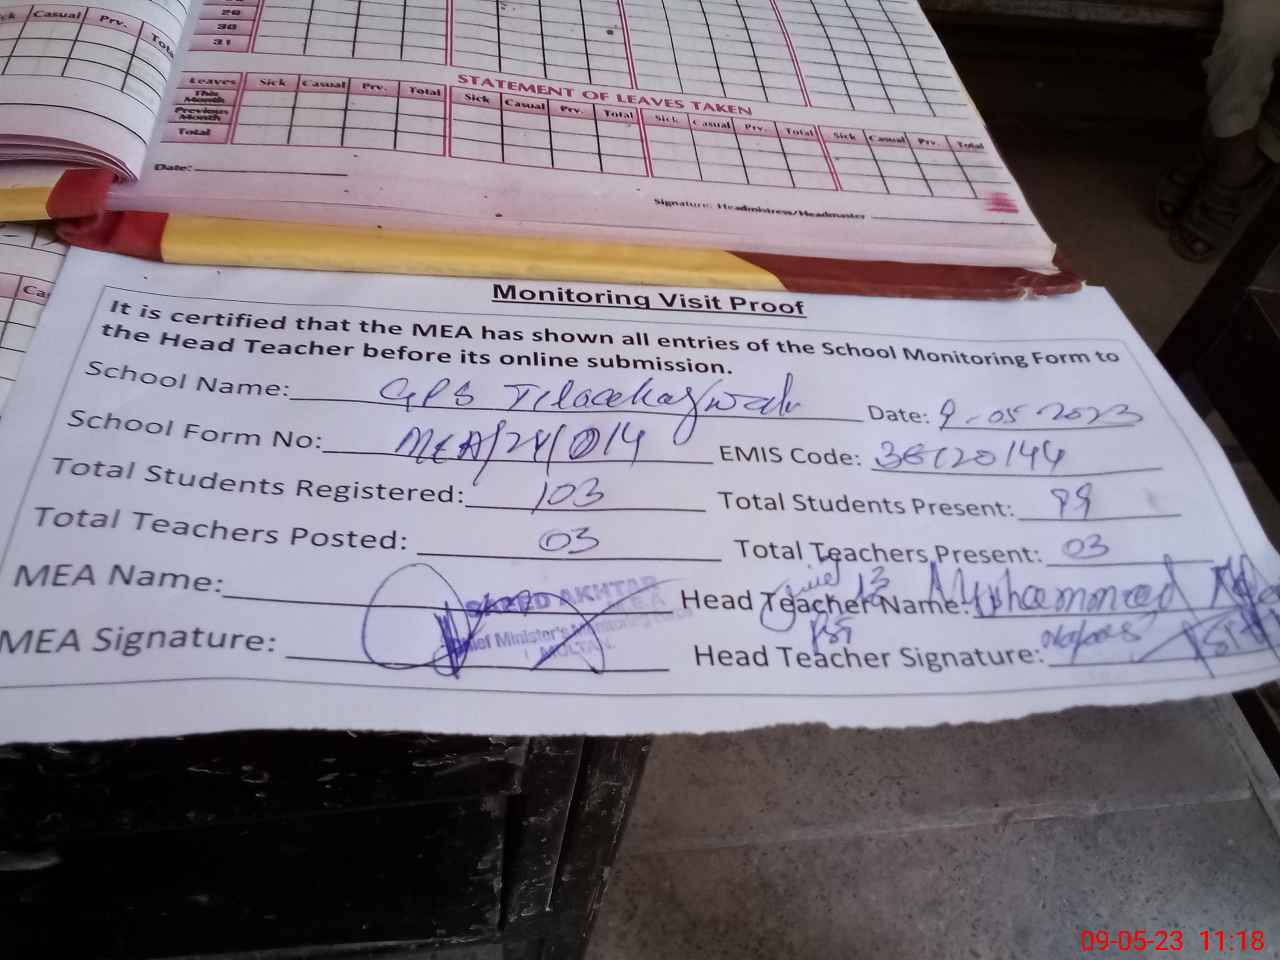 29
30
31
Sick Casual Prv. Total
Leaves Sick Casual Prv. Total
STATEMENT OF LEAVES TAKEN
Sick Casual Prv. Total Sick Casual Prv. Total Sick Casual Prv. Total
This Month
Previous Month
Total
Date:
Signature: Headmistress/Headmaster
Monitoring Visit Proof
It is certified that the MEA has shown all entries of the School Monitoring Form to
the Head Teacher before its online submission.
School Name: GPS Date: 9-05-2023
School Form No: MEA/24/014 EMIS Code: 36120144
Total Students Registered: 103 Total Students Present: 99
Total Teachers Posted: 03 Total Teachers Present: 03
MEA Name: SAEED AKHTAR Head Teacher Name: Muhammad
Chief Minister's Monitoring Force
MULTAN
MEA Signature: Head Teacher Signature:
09-05-23 11:18